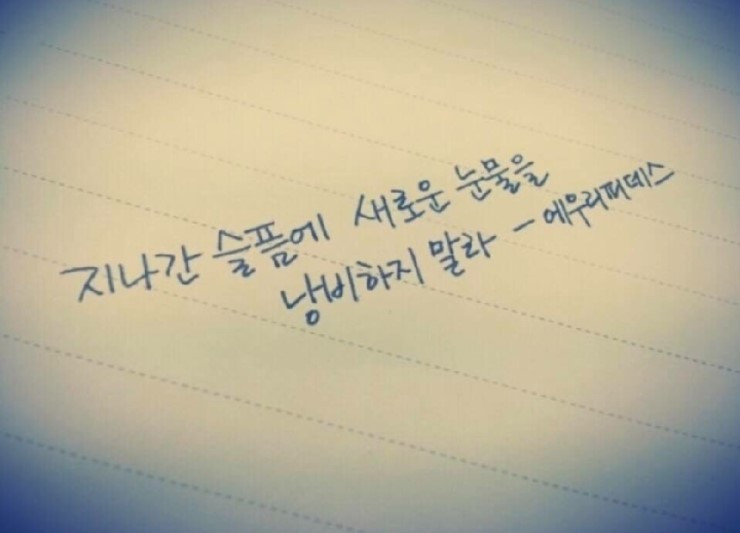 지나간 슬픔에 새로운 눈물을
낭비하지 말라 - 에우리피데스